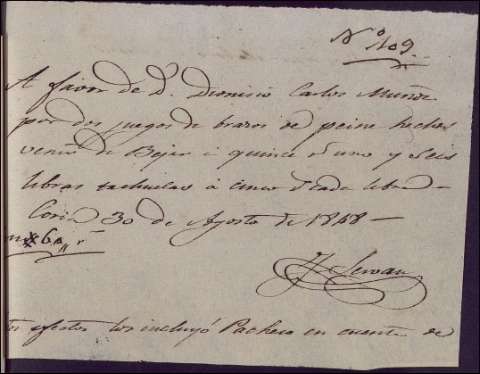 Nº 109.
A favor de D. Dionisio Carlos Muñoz
por dos juegos de brazos de peine hechos
venir de Bejar á quince rs uno y seis
libras tachuelas á cinco rs cada libra
Coria 30 de Agosto de 1848
60,, rs
Servan
efectos los incluyó Pacheco en cuenta de